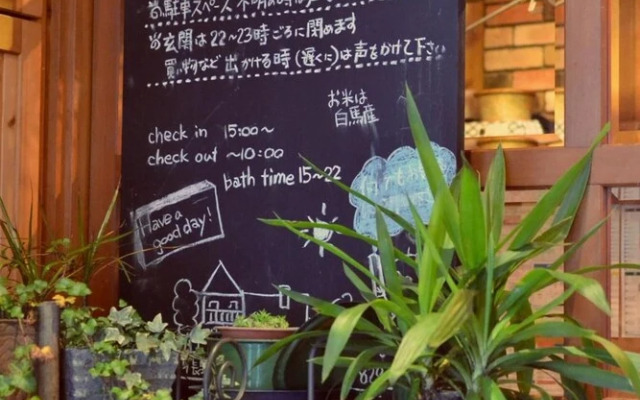 駐車スペース 不明の時は声
※玄関は22~23時ごろに閉めます
買い物など 出かける時(遅くに)は声をかけて下さい
お米は
白馬産
check in 15:00~
check out ~10:00
bath time 15~22
Have a
good day!